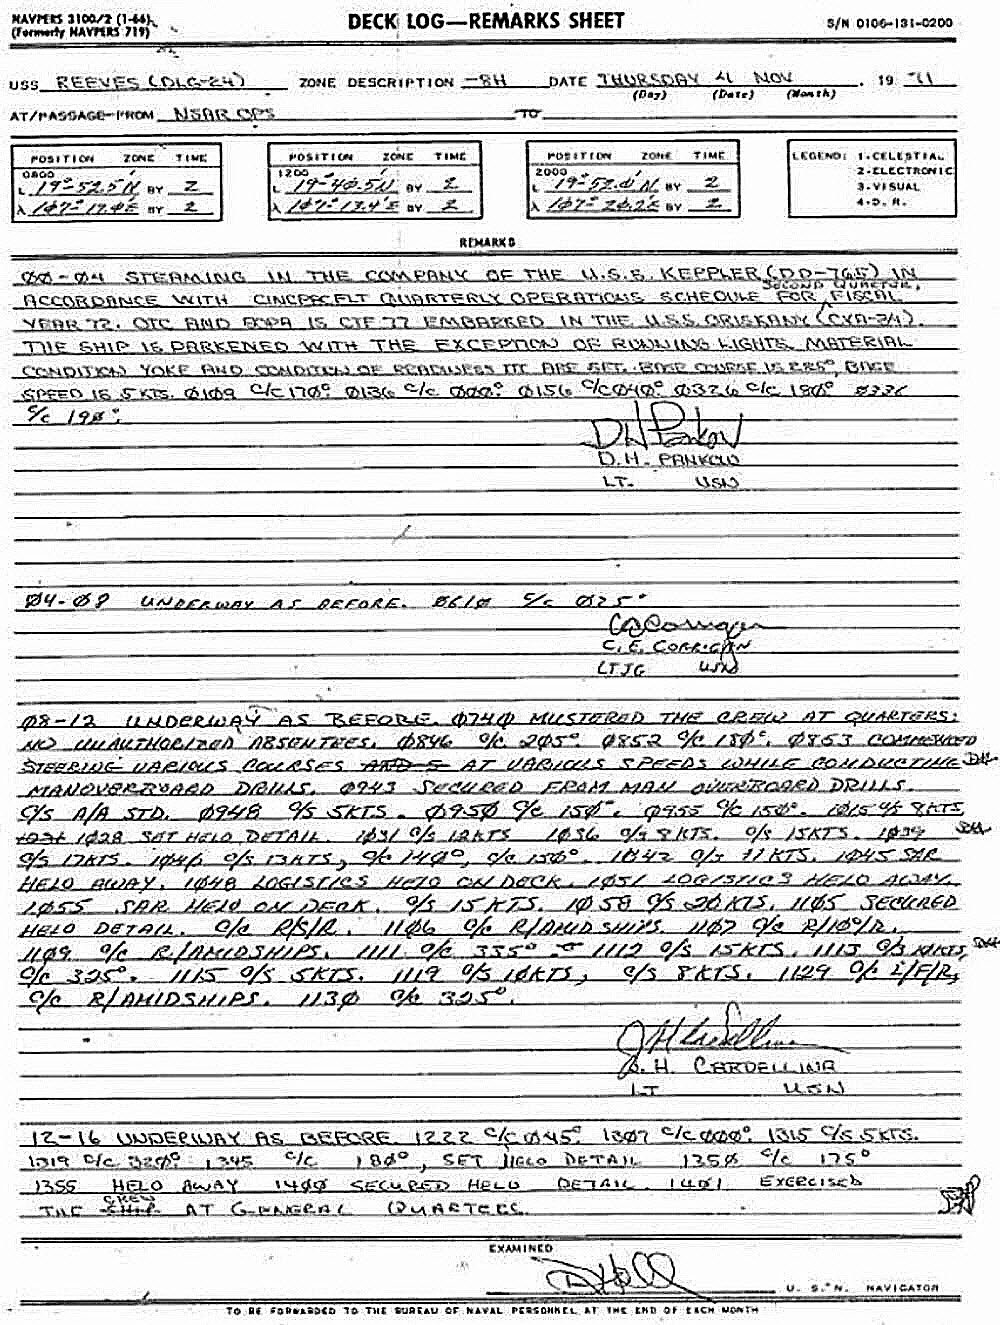 NAVPERS 3100/2 (1-66)
(Formerly NAVPERS 719)
DECK LOG—REMARKS SHEET
S/N 0106-131-0200
USS REEVES (DLG-24) ZONE DESCRIPTION -8H DATE THURSDAY 4 NOV 19 71
(Day) (Date) (Month)
AT/PASSAGE-FROM NSAR OPS TO
POSITION ZONE TIME
0800
L 19°-52.5'N BY 2
λ 107°-19.0'E BY 2
POSITION ZONE TIME
1200
L 19°-40.5'N BY 2
λ 107°-13.4'E BY 2
POSITION ZONE TIME
2000
L 19°-52.0'N BY 2
λ 107°-20.2'E BY 2
LEGEND: 1-CELESTIAL
2-ELECTRONIC
3-VISUAL
4-D. R.
REMARKS
00-04 STEAMING IN THE COMPANY OF THE U.S.S. KEPPLER (DD-765) IN
SECOND QUARTER,
ACCORDANCE WITH CINCPACFLT QUARTERLY OPERATIONS SCHEDULE FOR FISCAL
YEAR 72. OTC AND SOPA IS CTF 77 EMBARKED IN THE U.S.S. ORISKANY (CVA-34).
THE SHIP IS DARKENED WITH THE EXCEPTION OF RUNNING LIGHTS. MATERIAL
CONDITION YOKE AND CONDITION OF READINESS III ARE SET. BASE COURSE IS 225°, BASE
SPEED IS 5 KTS. 0109 C/C 170°. 0136 C/C 000°. 0156 C/C 040°. 0326 C/C 180° 0331
C/C 190°.
D H Pankow
D. H. PANKOW
LT. USN
04-08 UNDERWAY AS BEFORE. 0610 C/C 025°
C E Corrigan
C. E. CORRIGAN
LTJG USN
08-12 UNDERWAY AS BEFORE. 0740 MUSTERED THE CREW AT QUARTERS:
NO UNAUTHORIZED ABSENTEES. 0846 C/C 205°. 0852 C/C 180°. 0853 COMMENCED
STEERING VARIOUS COURSES AND S AT VARIOUS SPEEDS WHILE CONDUCTING
MANOVERBOARD DRILLS. 0943 SECURED FROM MAN OVERBOARD DRILLS.
C/S A/A STD. 0948 C/S 5KTS. 0950 C/C 150°. 0955 C/C 150°. 1015 C/S 8KTS
1031 1028 SET HELO DETAIL. 1031 C/S 12KTS 1036 C/S 8 KTS. C/S 15KTS. 1039
C/S 17KTS. 1040 C/S 13KTS, C/C 140°, C/C 150°. 1042 C/S 11 KTS. 1045 SAR
HELO AWAY. 1048 LOGISTICS HELO ON DECK. 1051 LOGISTICS HELO AWAY.
1055 SAR HELO ON DECK. C/S 15 KTS. 1058 C/S 20 KTS. 1105 SECURED
HELO DETAIL. C/C R/S/R. 1106 C/C R/AMIDSHIPS. 1107 C/C R/10°/R.
1109 C/C R/AMIDSHIPS. 1111 C/C 335° 1112 C/S 15KTS. 1113 C/S 10KTS,
C/C 325°. 1115 C/S 5KTS. 1119 C/S 10KTS, C/S 8KTS. 1129 C/C L/F/R,
C/C R/AMIDSHIPS. 1130 C/C 325°.
J H Cardellina
J. H. CARDELLINA
LT USN
12-16 UNDERWAY AS BEFORE. 1222 C/C 045°. 1307 C/C 000°. 1315 C/S 5KTS.
1319 C/C 320°. 1345 C/C 180°, SET HELO DETAIL 1350 C/C 175°
1355 HELO AWAY 1400 SECURED HELO DETAIL. 1401 EXERCISED
CREW
THE SHIP AT GENERAL QUARTERS.
EXAMINED
U. S. N. NAVIGATOR
TO BE FORWARDED TO THE BUREAU OF NAVAL PERSONNEL AT THE END OF EACH MONTH